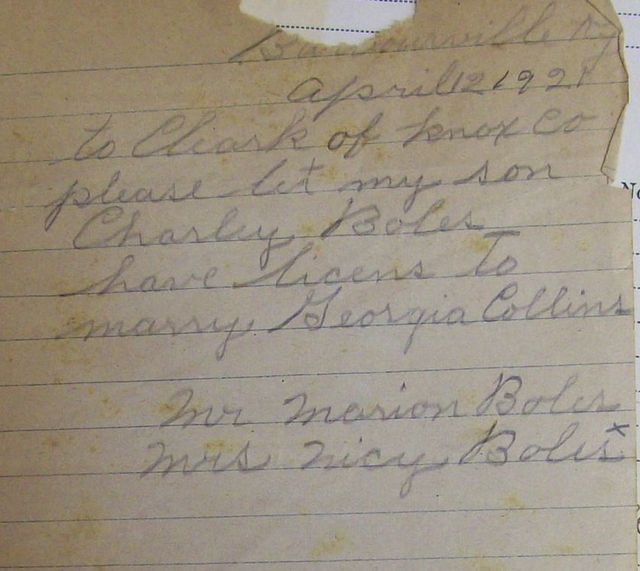 Barbourville Ky
April 12 1921
to Cleark of Knox Co
please let my son
Charley Boles
have licens to
marry Georgia Collins
Mr Marion Boles
Mrs Nicy Boles x